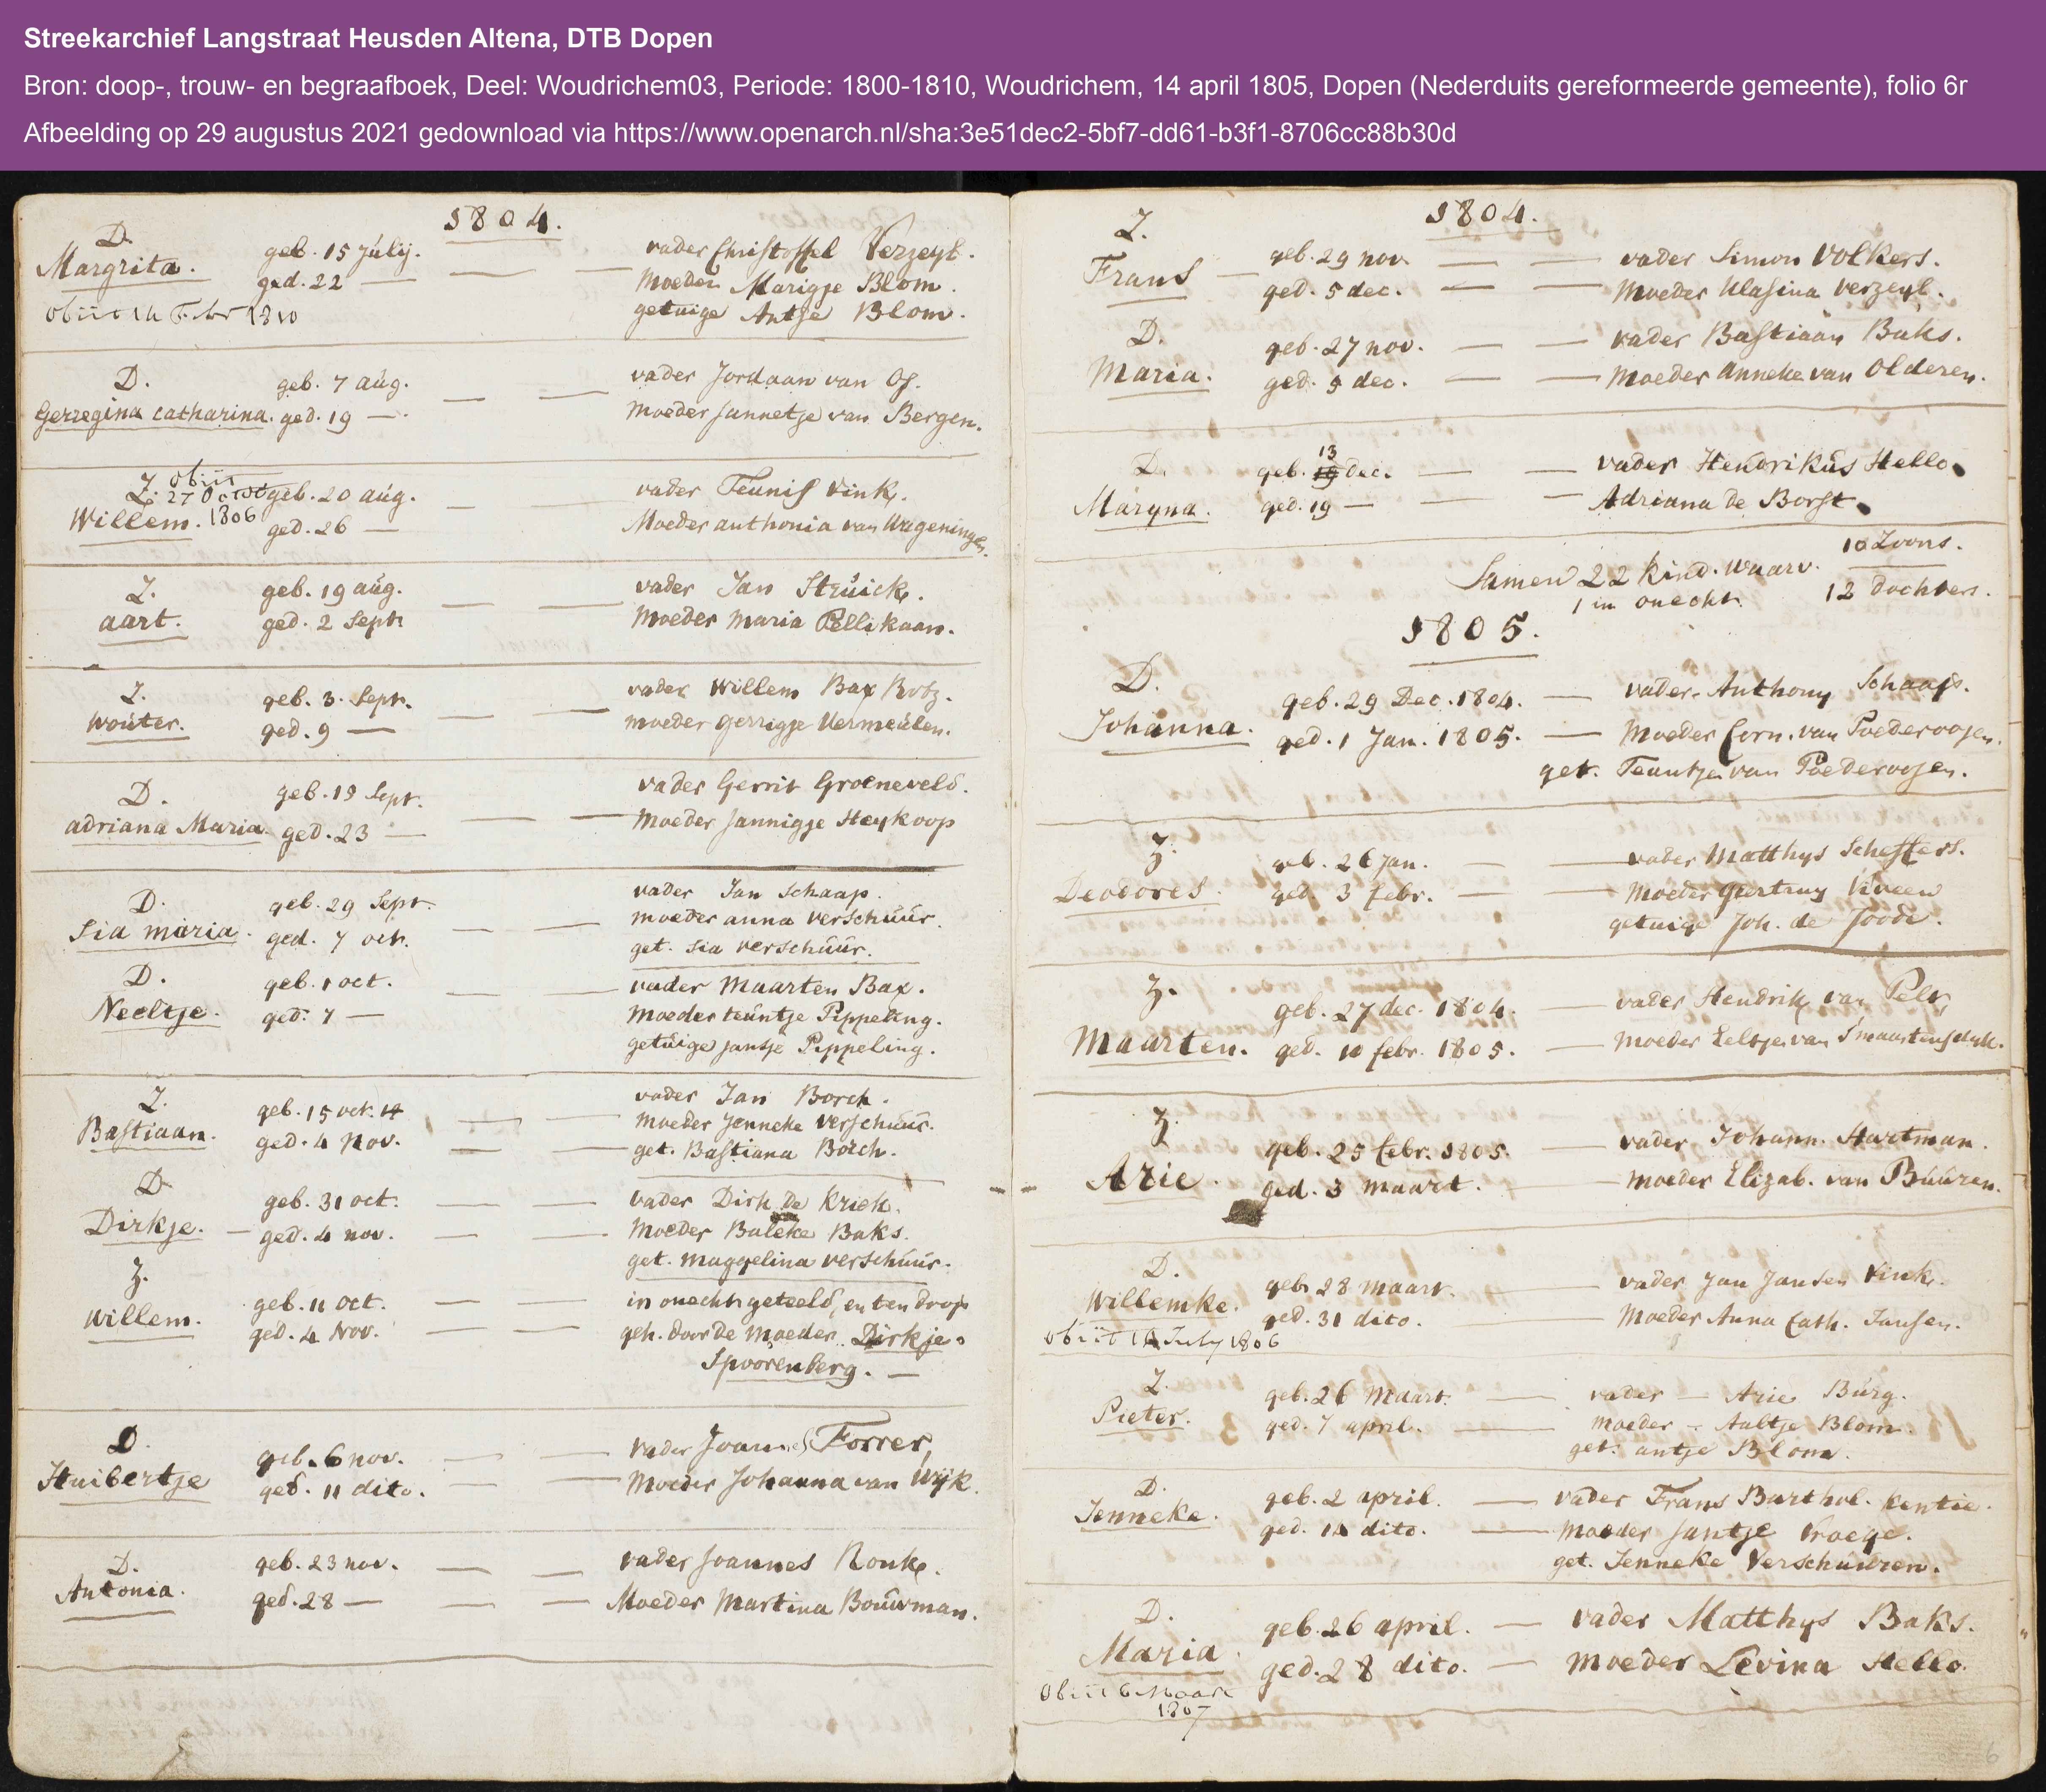 Streekarchief Langstraat Heusden Altena, DTB Dopen
Bron: doop-, trouw- en begraafboek, Deel: Woudrichem03, Periode: 1800-1810, Woudrichem, 14 april 1805, Dopen (Nederduits gereformeerde gemeente), folio 6r
Afbeelding op 29 augustus 2021 gedownload via https://www.openarch.nl/sha:3e51dec2-5bf7-dd61-b3f1-8706cc88b30d
1804.
D. geb. 15 Julij. vader Christoffel Verzeyl.
Margrita. ged. 22 — Moeder Marigje Blom.
obiit 14 Febr 1810 getuige Antje Blom.
D. geb. 7 aug. vader Jordaan van Os.
Gerregina catharina. ged. 19 — Moeder Jannetje van Bergen.
Z. obiit 27 Octob 1806 geb. 20 aug. vader Teunis Vink.
Willem. ged. 26 — Moeder anthonia van Wageningen.
Z. geb. 19 aug. vader Jan Struick.
aart. ged. 2 Sept. Moeder Maria Pellikaan.
Z. geb. 3. Sept. vader Willem Bax Rutz.
Wouter. ged. 9 — moeder Gerrigje Vermeulen.
D. geb. 19 Sept. vader Gerrit Groeneveld.
adriana Maria. ged. 23 — Moeder Jannigje Heykoop
D. geb. 29 Sept. vader Jan Schaap.
Sia maria. ged. 7 oct. moeder anna Verschuur.
get. Sia Verschuur.
D. geb. 1 oct. vader Maarten Bax.
Neeltje. ged. 7 — Moeder teuntje Pippeling.
getuige Jantje Pippeling.
Z. geb. 15 oct. 14 vader Jan Borch.
Bastiaan. ged. 4 Nov. Moeder Jenneke Verschuur.
get. Bastiana Borch.
D. geb. 31 oct. vader Dirk de Kriek.
Dirkje. — ged. 4 nov. Moeder Baleke Baks.
get. Maggelina Verschuur.
Z. geb. 11 oct. in onecht geteeld, en ten doop
Willem. ged. 4 Nov. geh. door de Moeder Dirkje
Spoorenberg. —
D. geb. 6 nov. vader Joannes Forrer,
Huibertje ged. 11 dito. Moeder Johanna van Wijk.
D. geb. 23 nov. vader Joannes Ronk.
Antonia. ged. 28 — Moeder Martina Bouwman.
1804.
Z. geb. 29 nov. vader Simon Volkers.
Frans — ged. 5 dec. Moeder Klasina Verzeyl.
D. geb. 27 nov. vader Bastiaan Baks.
Maria. ged. 5 dec. Moeder Anneke van Olderen.
D. geb. 13 19 dec. vader Hendrikus Hello
Maryna. ged. 19 — Adriana de Borst.
Samen 22 kind. waarv. 10 Zoons.
1 in onecht. 12 dochters.
1805.
D. geb. 29 Dec. 1804. vader Anthony Schaap.
Johanna. ged. 1 Jan. 1805. Moeder Corn. van Poederooijen.
get. Teuntje van Poederooijen.
Z. geb. 26 Jan. vader Matthys Scheffers.
Deodores. ged. 3 febr. Moeder Geertruy Viveen
getuige Joh. de Joode.
Z. geb. 27 dec. 1804. vader Hendrik van Pelt,
Maarten. ged. 10 febr. 1805. Moeder Eeltje van Smaartensdijk.
Z. geb. 25 febr. 1805. vader Johann. Hartman.
Arie. ged. 3 maart. Moeder Elizab. van Buuren.
D. geb. 28 Maart. vader Jan Jansen Vink.
Willemke. ged. 31 dito. Moeder Anna Cath. Jansen.
obiit 14 July 1806
Z. geb. 26 Maart. vader — Arie Burg.
Pieter. ged. 7 april. Moeder — Aaltje Blom.
get. antje Blom.
D. geb. 2 april. vader Frans Barthol. Kentie.
Jenneke. ged. 14 dito. Moeder Jantje Vroege.
get. Jenneke Verschuuren.
D. geb. 26 april. vader Matthys Baks.
Maria. ged. 28 dito. moeder Levina Hello.
Obiit 6 Maart
1807
6